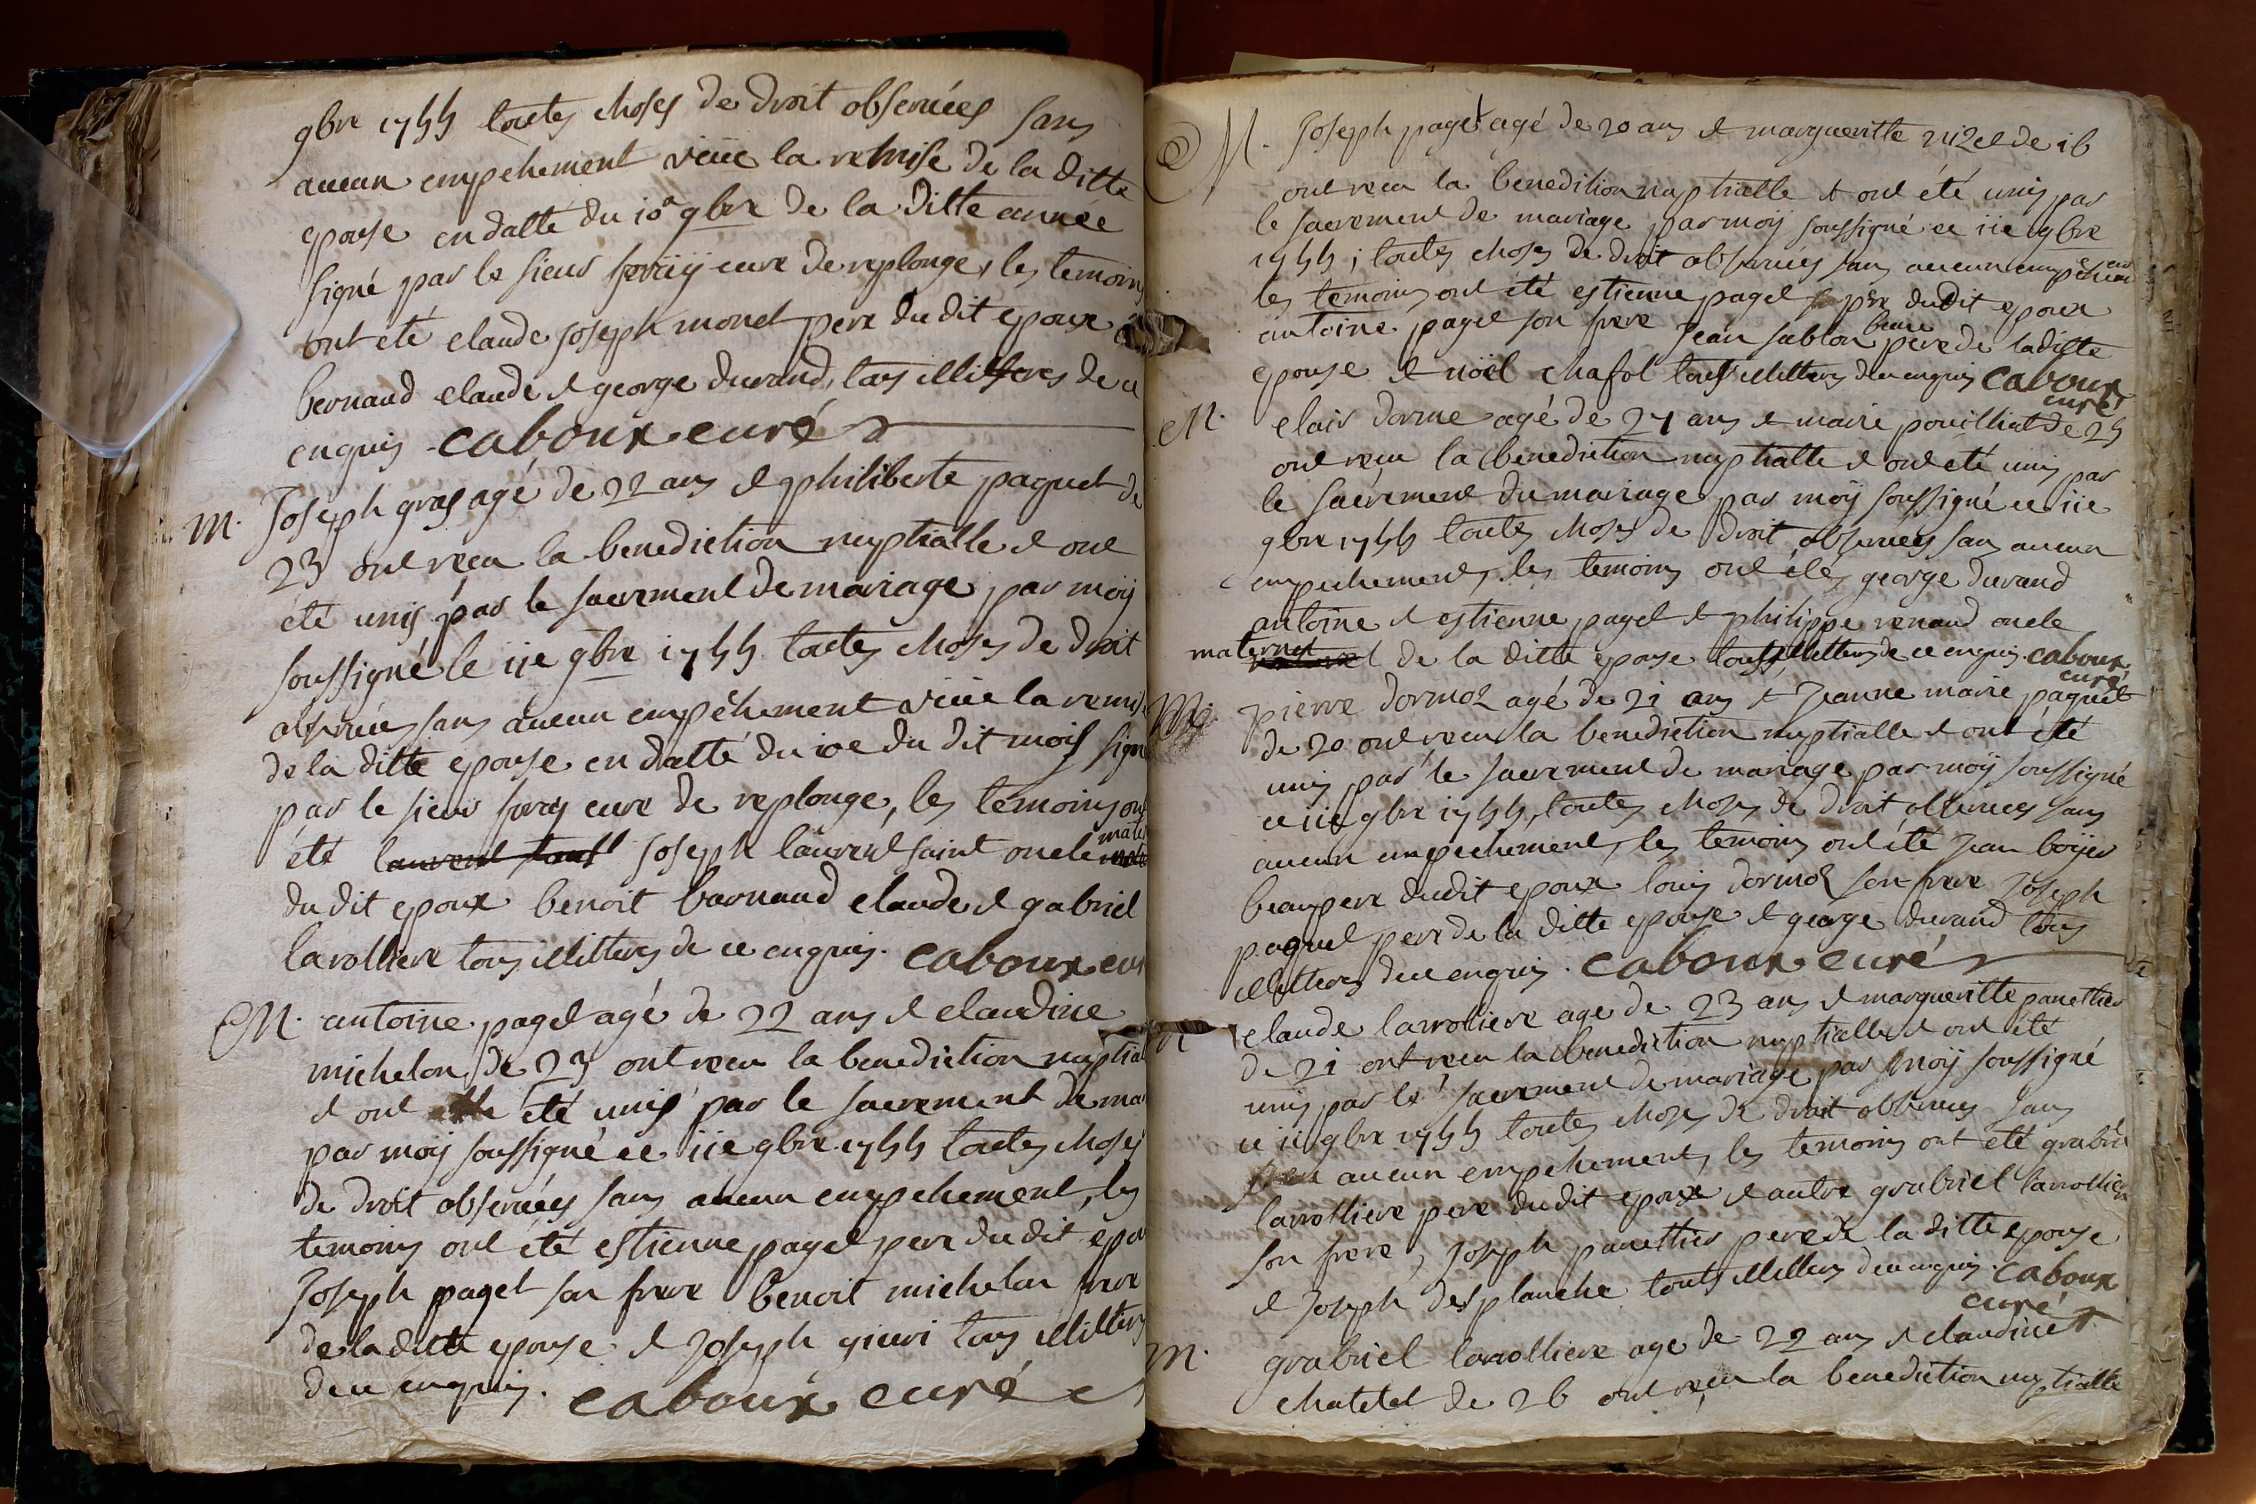 9bre 1755 toutes choses de droit observées sans
aucun empechement veüe la remise de la ditte
epouse en datte du 10e 9bre de la ditte année
signé par le sieur curé de replonge, les temoins
ont été claude joseph monet pere du dit epoux
bernard claude et george durand, tous illitteres de ce
enquis caboux curé
M. Joseph gras agé de 22 ans et philiberte paquet de
23 ont recu la benediction nuptialle et ont
été unis par le sacrement de mariage par moÿ
soussigné le 11e 9bre 1755 toutes choses de droit
observées sans aucun empêchement veüe la remise
de la ditte epouse en datté du 10e du dit mois signé
par le sieur curé de replonge, les temoins ont
été joseph laurent saint oncle
du dit epoux benoit barnaud claude et gabriel
larolliere tous illitteres de ce enquis. caboux curé
M. antoine paget agé de 22 ans et claudine
michelon de 23 ont recu la benediction nuptial
et ont été unis par le sacrement de ma
par moÿ soussigné ce 11e 9bre 1755 toutes choses
de droit observées sans aucun empechement, les
temoins ont été estienne paget pere du dit epou
Joseph paget son frere benoit michelon frere
de la ditte epouse et joseph tous illitteres
de ce enquis. caboux curé
M. Joseph paget agé de 20 ans et margueritte nizet de 16
ont recu la benedition nuptialle et ont été unis par
le sacrement de mariage par moÿ soussigné ce 11e 9bre
1755; toutes choses de droit observées sans aucun empêchement
les temoins ont été estienne paget pere du dit epoux
antoine paget son frere Jean sablon beau pere de la ditte
epouse et noël chafol tous illitteres de ce enquis caboux
curé
M. clair dorme agé de 27 ans et marie pouilliat de 25
ont recu la benediction nuptialle et ont été unis par
le sacrement du mariage par moÿ soussigné ce 11e
9bre 1755 toutes choses de droit observées sans aucun
empechement, les temoins ont étés george durand
antoine et estienne paget et philippe renaud oncle
maternel de la ditte epouse tous illitteres de ce enquis. caboux
curé
M. pierre dormoz agé de 21 ans et Jeanne marie paquet
de 20 ont recu la benediction nuptialle et ont été
unis par le sacrement de mariage par moÿ soussigné
ce 11e 9bre 1755, toutes choses de droit observées sans
aucun empechement, les temoins ont été jean boÿer
beaupere du dit epoux louis dormoz son frere joseph
paquet pere de la ditte epouse et george durand tous
illitteres de ce enquis. caboux curé
claude larrolliere agé de 23 ans et margueritte panettier
de 21 ont recu la benediction nuptialle et ont été
unis par le sacrement de mariage par moÿ soussigné
ce 11e 9bre 1755 toutes choses de droit observées sans
aucun empechement, les temoins ont été grabriel
larrolliere pere du dit epoux et autre grabriel larrolliere
son frere, joseph panettier pere de la ditte epouse
et joseph desplanche touts illitteres de ce enquis. caboux
curé
M. grabriel larrolliere agé de 22 ans et claudine
chatelet de 26 ont recu la benediction nuptialle